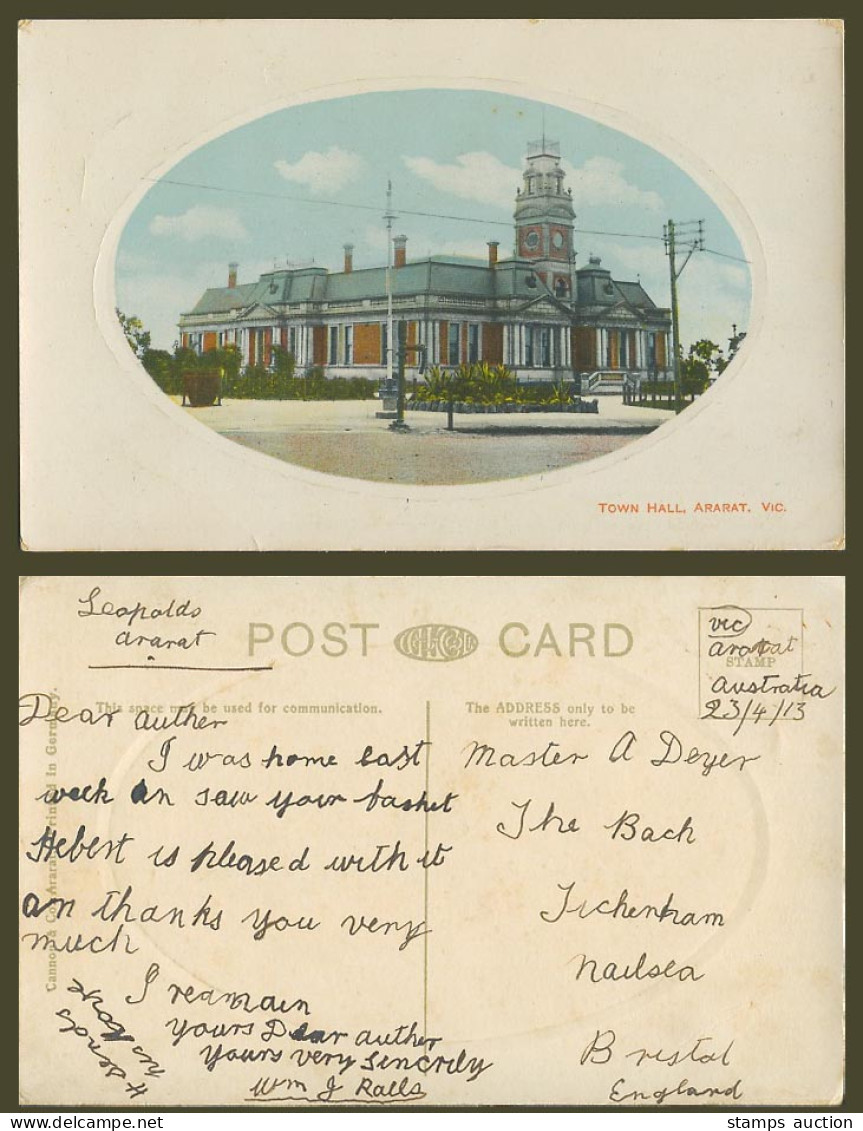 TOWN HALL, ARARAT. VIC.
Leopolds
ararat
POST CARD
vic
ararat
STAMP
Australia
23/4/13
This space may be used for communication.
The ADDRESS only to be
written here.
Dear auther
I was home last
week an saw your basket
Hebert is pleased with it
an thanks you very
much
I reamain
yours Dear auther
yours very sincrily
Wm J Ralls
H sends
his
Master A Deyer
The Bach
Tichenham
Nailsea
Bristol
England
Cannon & Co. Ararat. Printed in Germany.
stamps auction